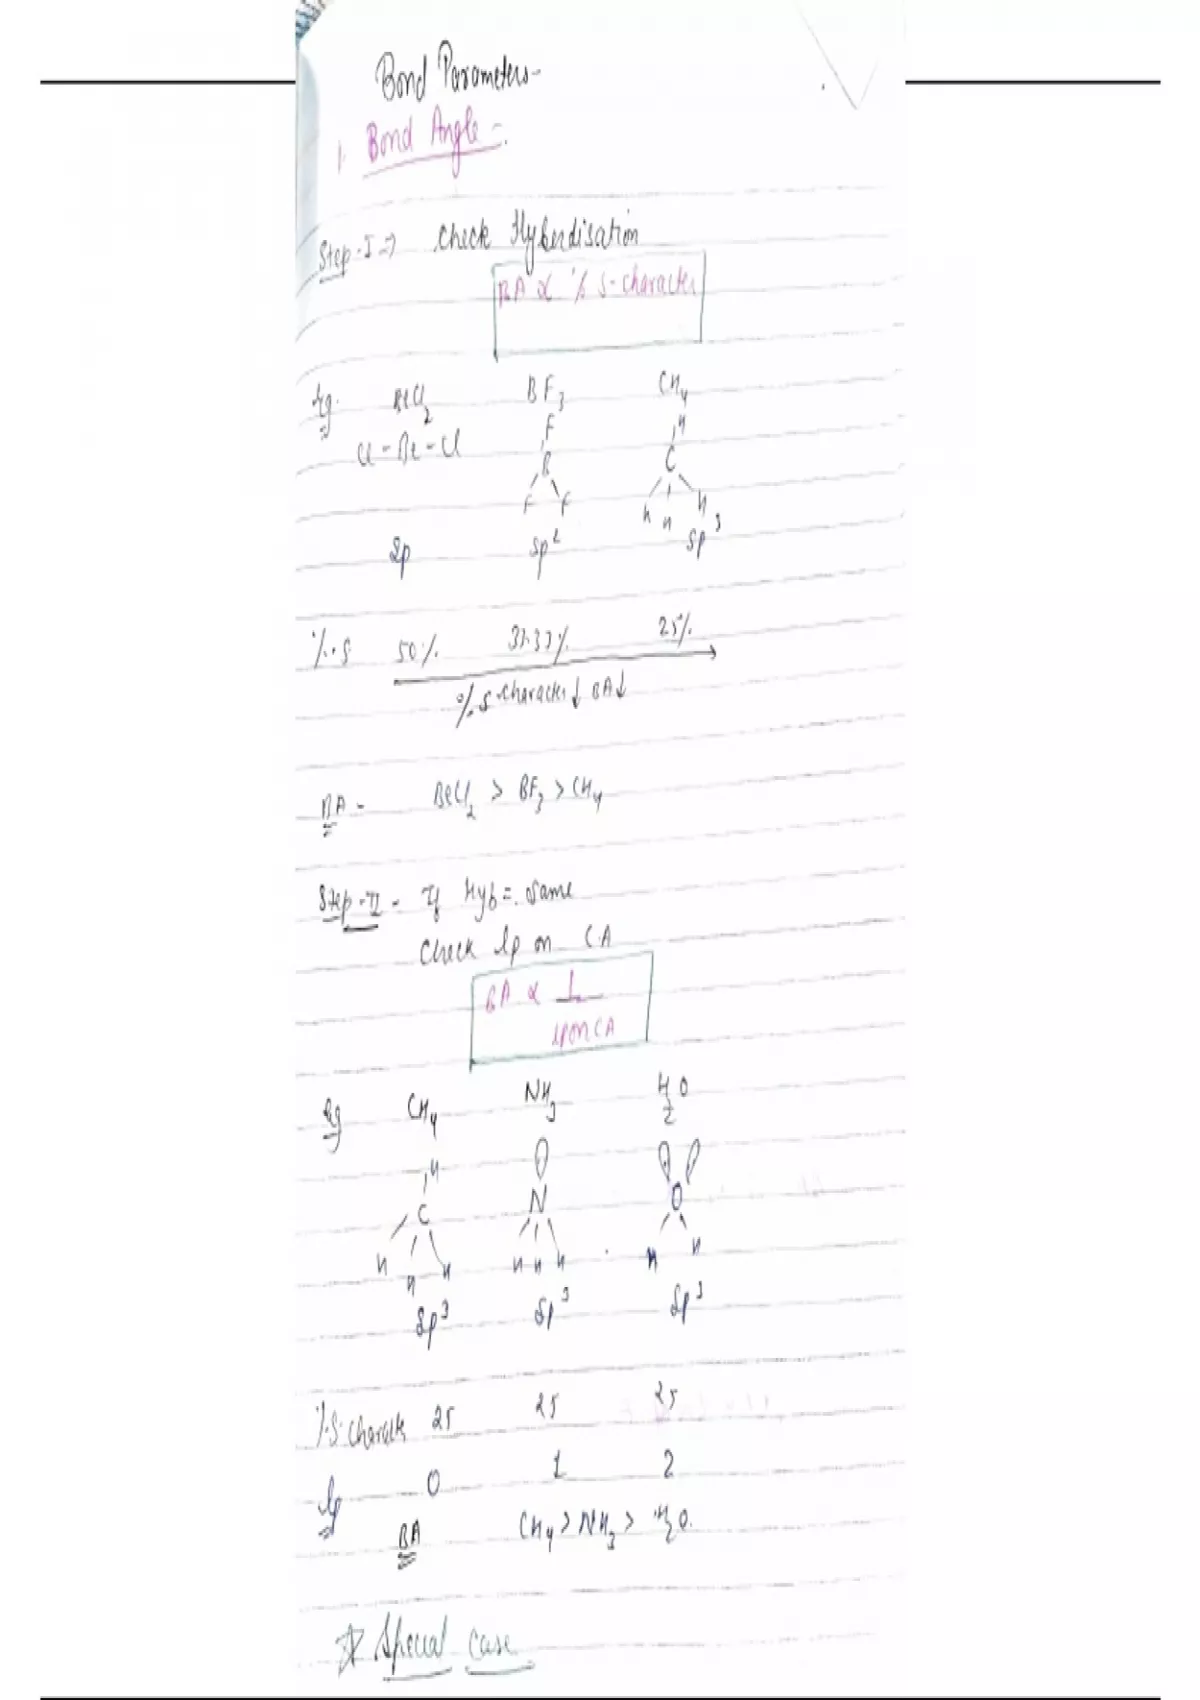 Bond Parameters-
1. Bond Angle -.
Step-I → Check Hyberdisation
BA ∝ % s-character
Eg. BeCl2 BF3 CH4
Cl-Be-Cl
F
B
F F
H
C
H H H
Sp Sp2 Sp3
%.S 50%. 33.33%. 25%.
%.S-Character↓ BA↓
BA - BeCl2 > BF3 > CH4
Step-II - If Hyb = Same
Check lp on CA
BA ∝ 1
lp on CA
Eg CH4 NH3 H2O
H
C N O
H H H H H H H H
Sp3 Sp3 Sp3
%S. Charact 25 25 25
lp 0 1 2
BA CH4 > NH3 > H2O.
☆ Special case